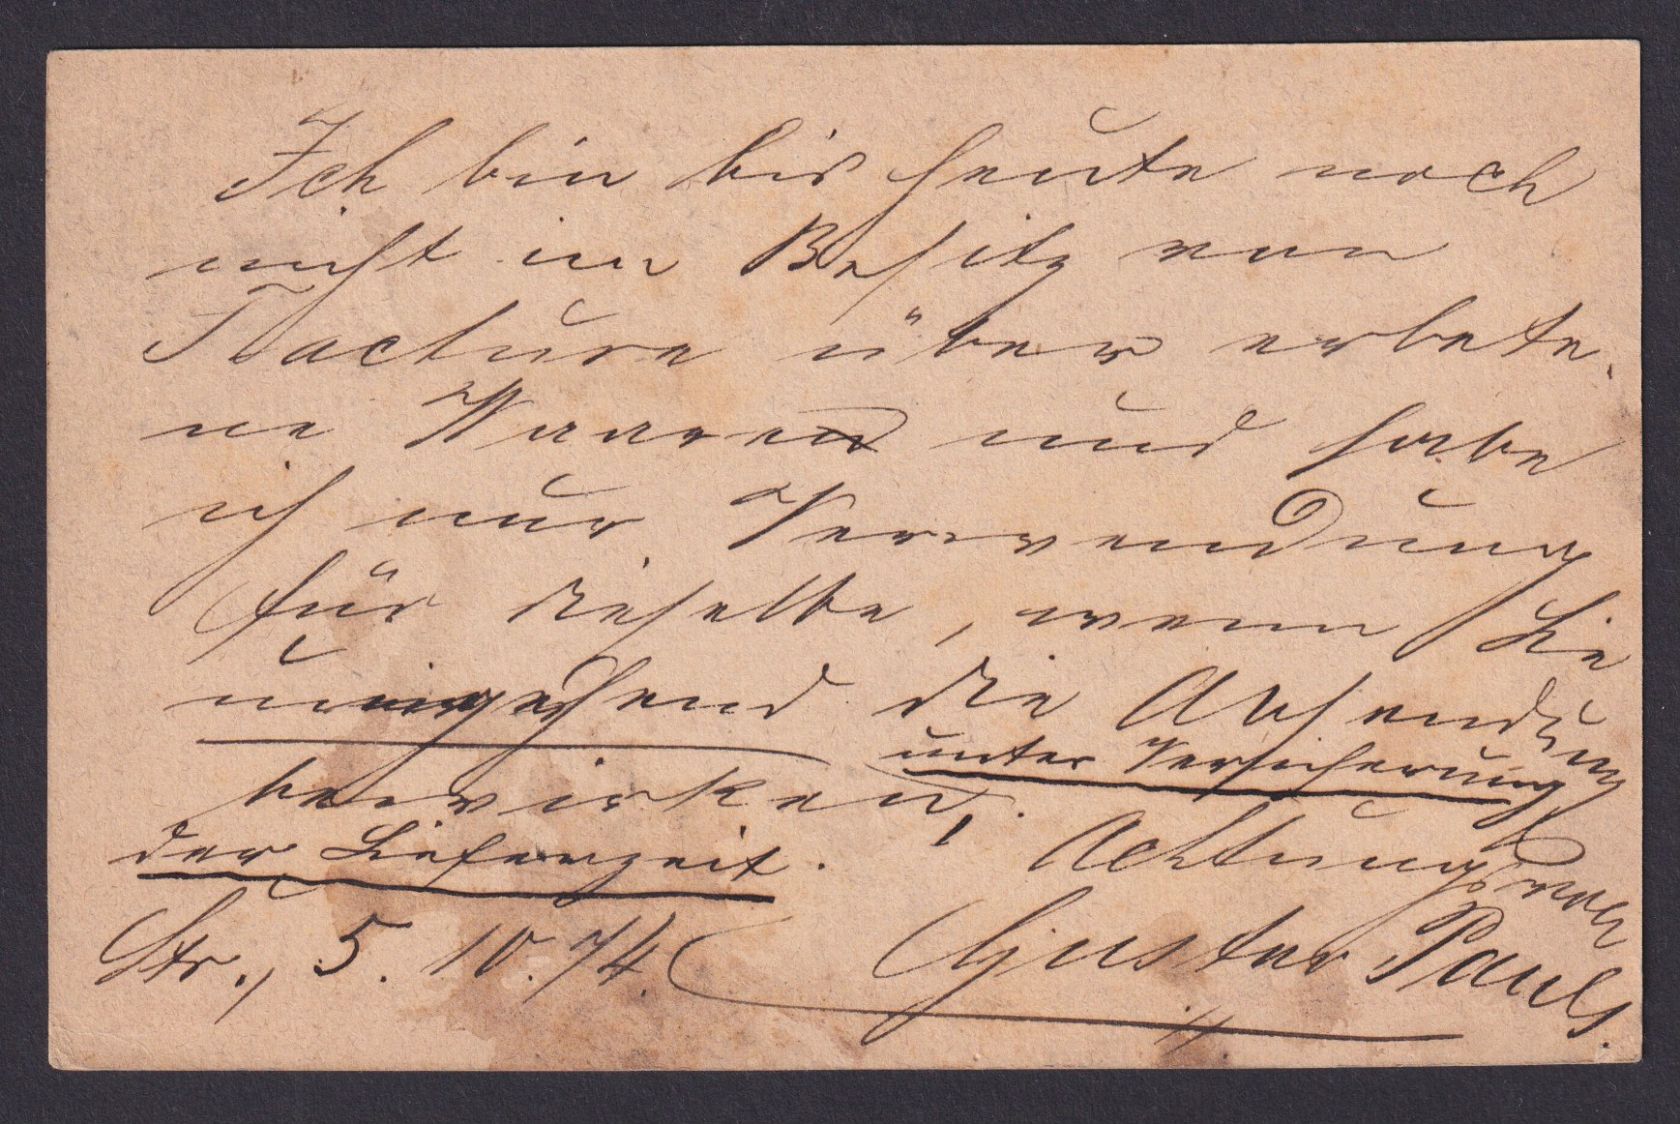 Ich bin bis heute noch
nicht im Besitz von
Factura über erbete-
ne Waaren und habe
ich nur Verwendung
für dieselbe, wenn Sie
umgehend die Absendung
unter Versicherung
bewirken,
der Lieferzeit. Achtungsvoll
Str., 5. 10. 74. Gustav Pauls.